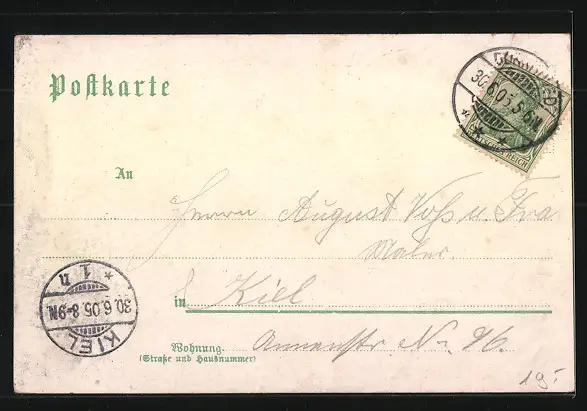 Postkarte
30.6.05. 5-6N.
DEUTSCHES REICH
An
Herrn August Voß u. Fra
Maler.
in Kiel
Wohnung. Annenstr No. 76.
(Straße und Hausnummer)
KIEL
30.6.05. 8-9N.
* 1 n
19.-